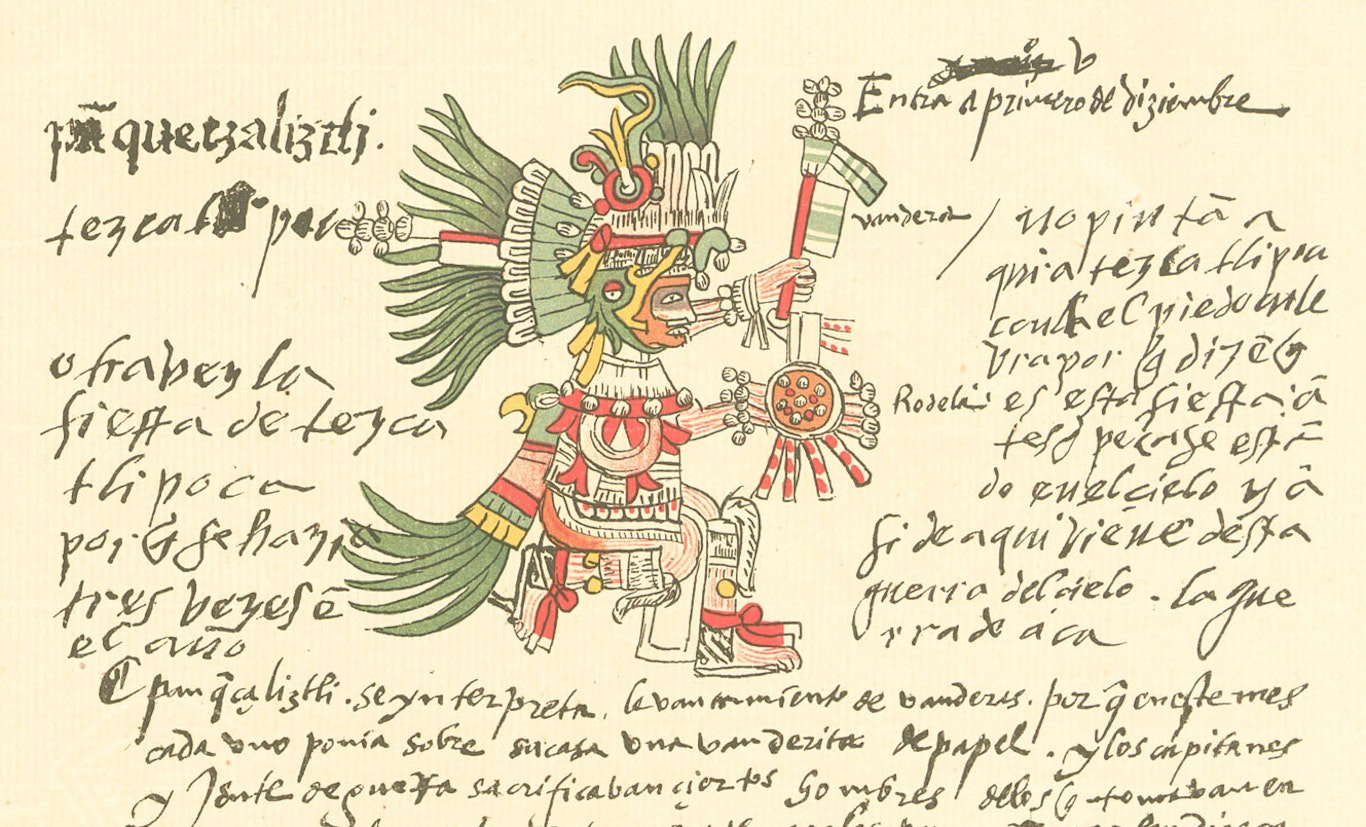 Entra a primero de diziembre
panquetzaliztli.
tezcatlipoca
vandera
no pintā a
qui a tezcatlipoca
con el pie de culebra por q̄ dizē q̄
Rodela
es esta fiesta ā
tes q̄ pecase estā
do en el cielo y ā
si de aqui viene desta
guerra del cielo . la gue
rra de aca
otra vez la
fiesta de tezca
tlipoca
por q̄ se hazia
tres vezes ē
el año
panq̄çaliztli . se ynterpreta, levantamiento de vanderas. por q̄ en este mes
cada vno ponia sobre su casa vna vanderita de papel . y los capitanes
y Jente de guerra sacrificavan çiertos hombres delos q̄ tomavan en